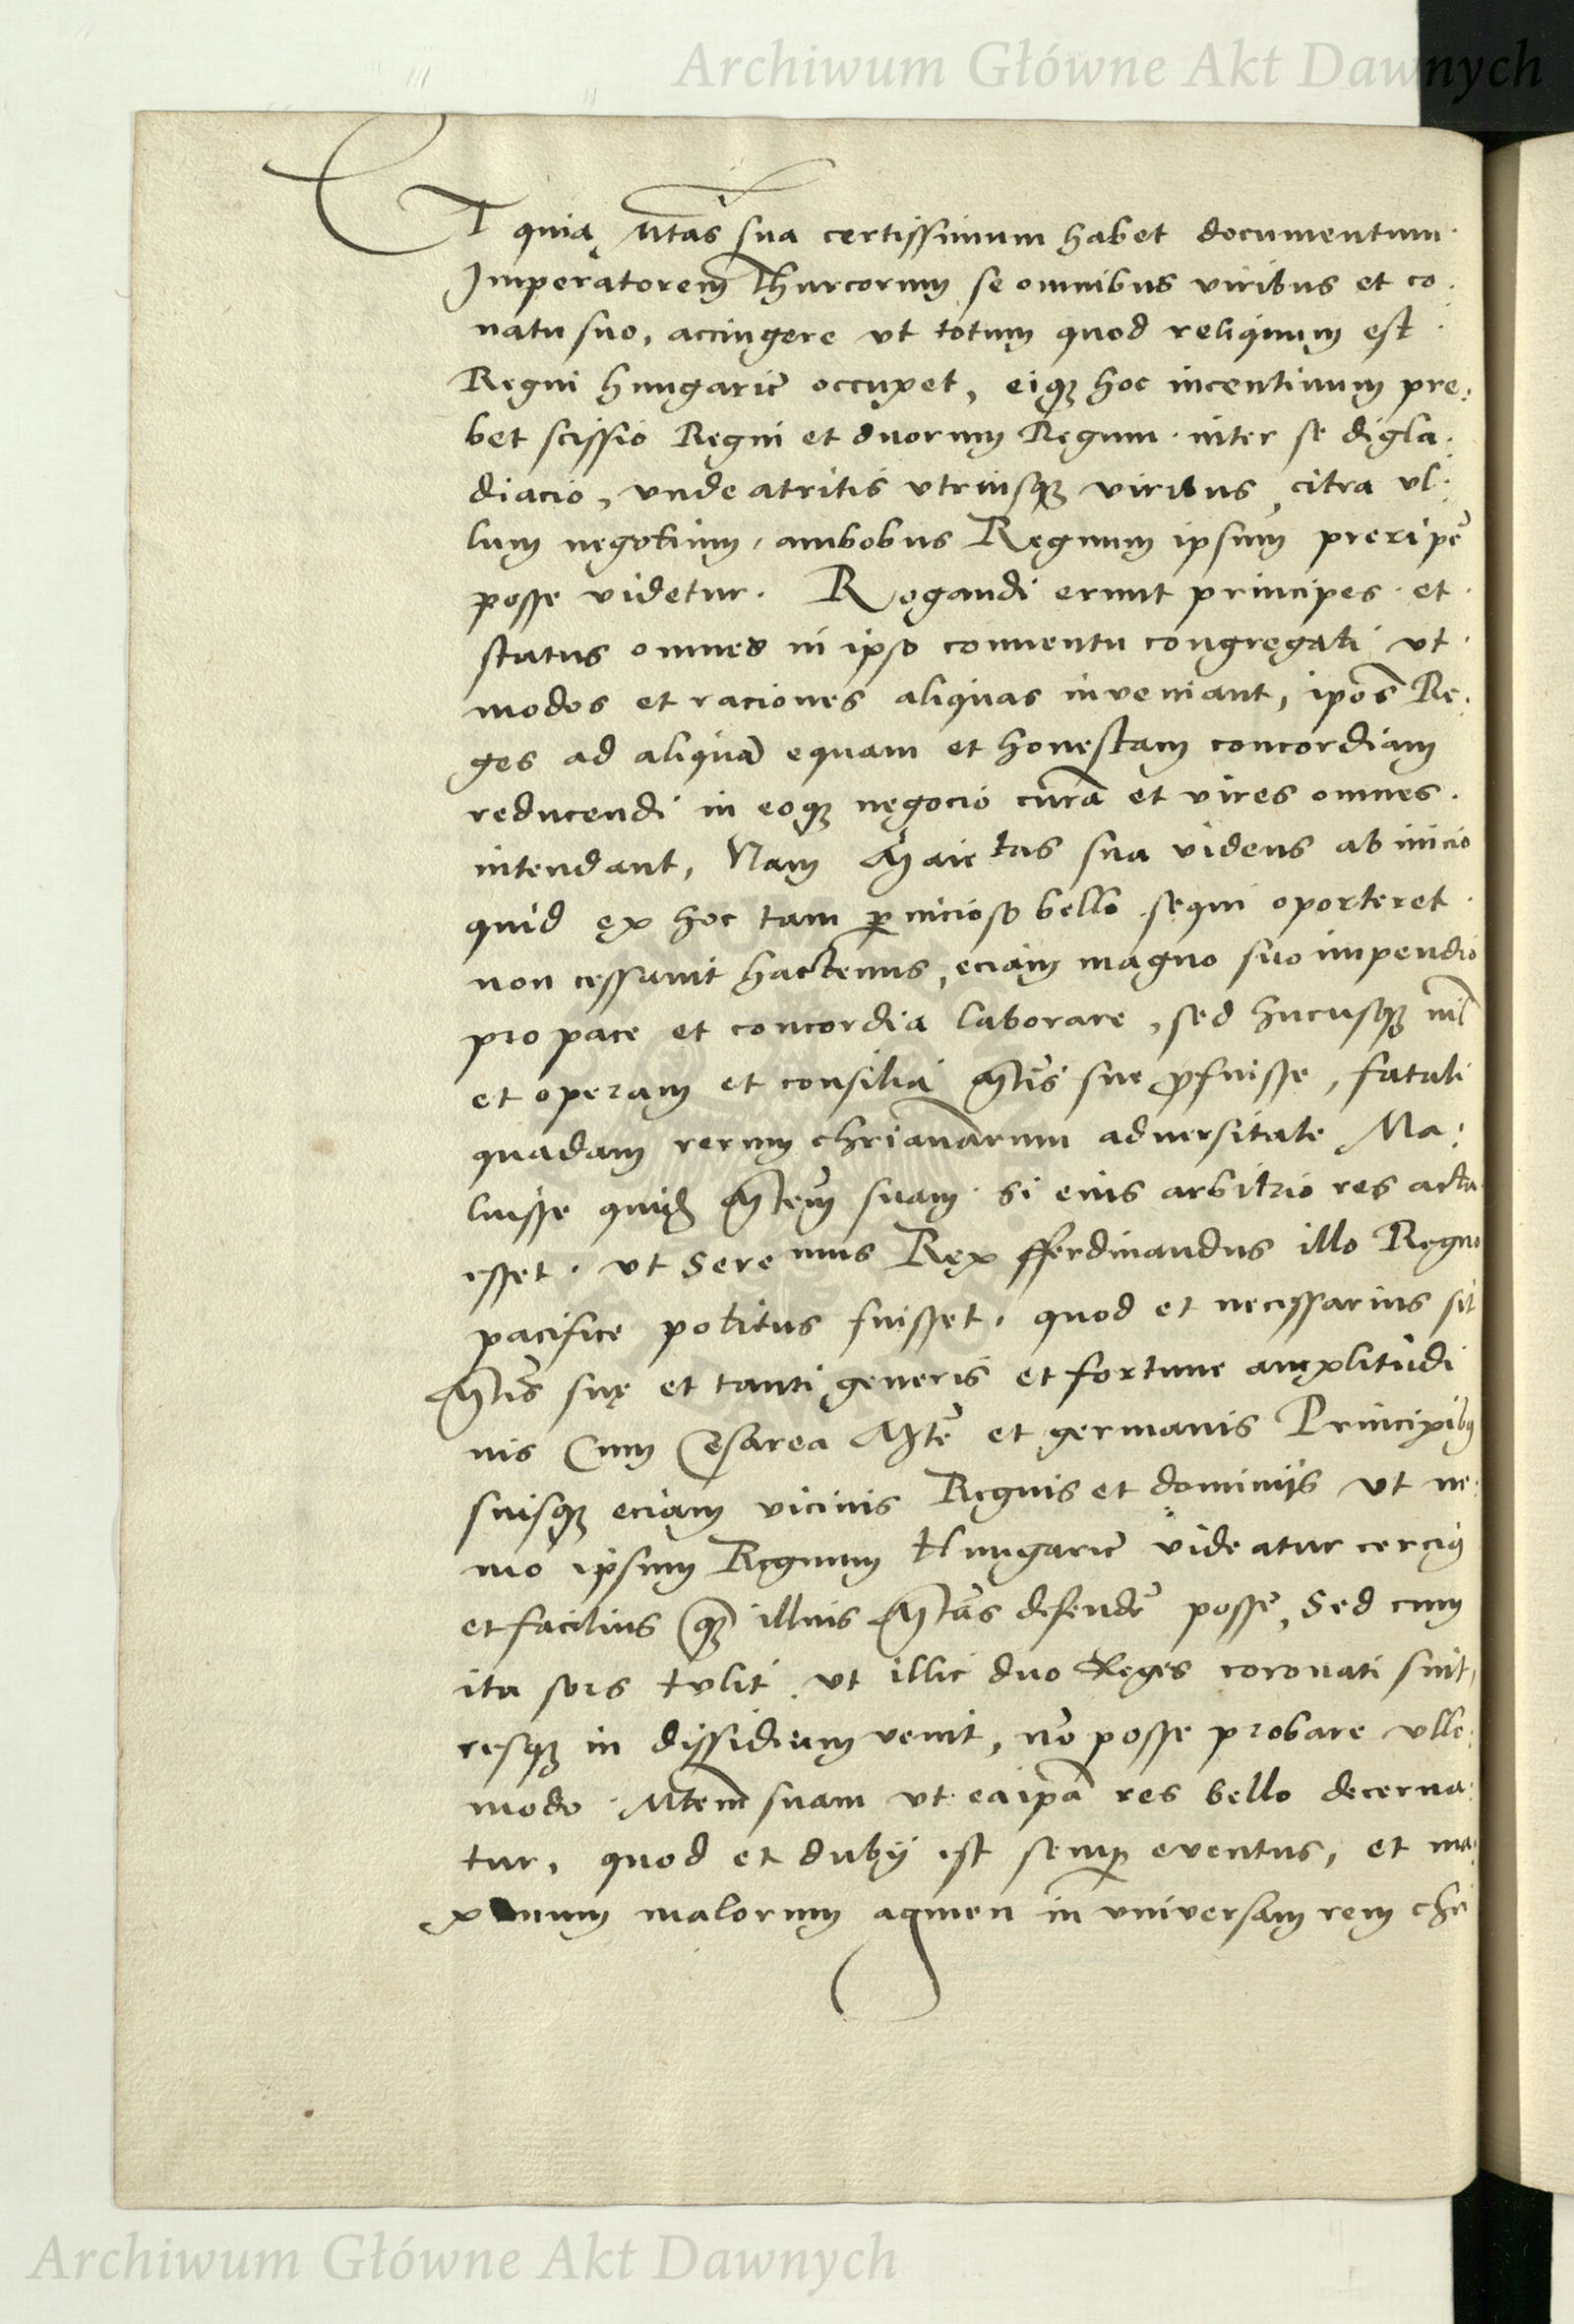 Archiwum Główne Akt Dawnych
Et quia Mtas sua certissimum habet documentum
Imperatorem Thurcorum se omnibus viribus et co
natu suo, accingere ut totum quod reliquum est
Regni hungarie occupet, eiqȝ hoc incentiuum pre
bet scissio Regni et duorum Regum inter se digla
diacio, unde atritis utriusqȝ viribus, citra ul
lum negotium, ambobus Regnum ipsum preripe
posse videtur. Rogandi erunt principes et
status omnes in ipso conuentu congregati ut
modos et raciones aliquas inveniant, ipos Re
ges ad aliquā equam et honestam concordiam
reducendi in eoqȝ negocio curā et vires omnes
intendant, Nam Maietas sua videns ab inicio
quid ex hoc tam ꝑnicioso bello sequi oporteret
non cessauit hactenus, eciam magno suo impendio
pro pace et concordia laborare, sed hucusqȝ nil
et operam et consilia Mtis sue ꝓfuisse, fatali
quadam rerum chrianarum aduersitate Ma
luisse quid Mtem suam si eius arbitrio res acta
esset. ut Serenmus Rex fferdinandus illo Regno
pacifice potitus fuisset. quod et necessarius sit
Mtis sue et tanti generis et fortune amplitudi
nis Cum Cesarea Mte et germanis Principibus
suisqȝ eciam vicinis Regnis et dominijs ut ne
mo ipsum Regnum Hungarie videatur cerciꝯ
et facilius qȝ illius Mtas defendē posse, Sed cum
ita sors tulit ut illic duo Reges coronati sint,
resqȝ in dissidium venit, nō posse probare ullo
modo Mtem suam ut ea ipā res bello decerna
tur, quod et dubij est semꝑ eventus, et ma
ximum malorum agmen in universam rem chri
Archiwum Główne Akt Dawnych